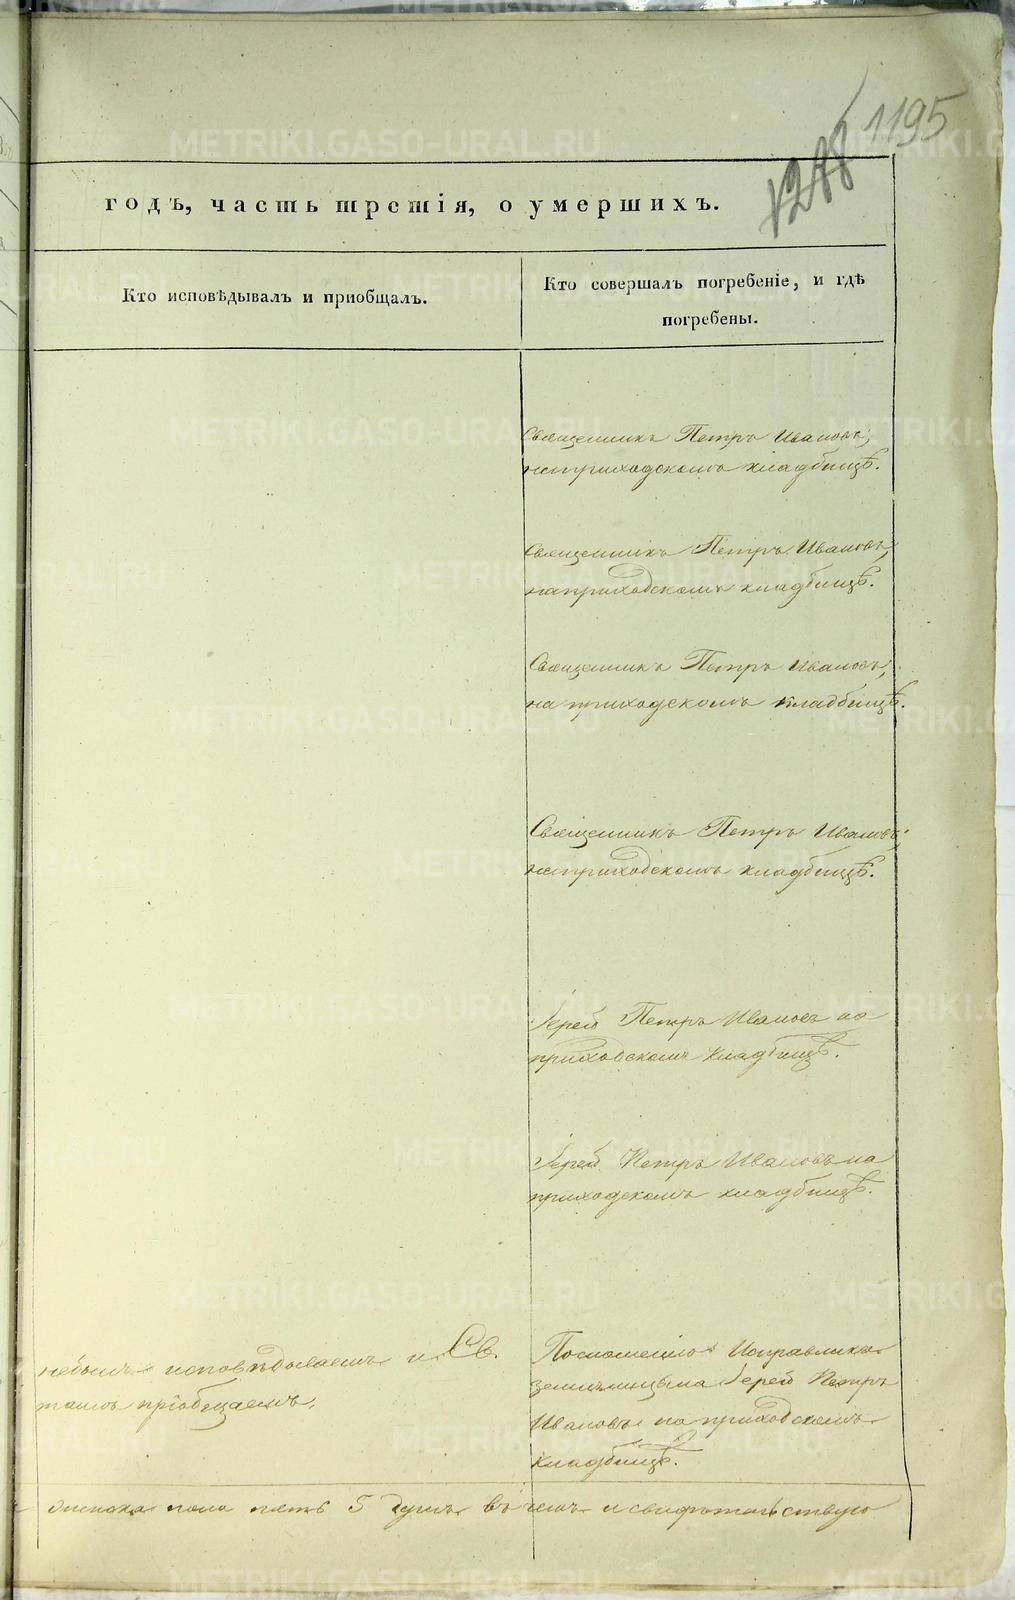 1195
годъ, часть третія, о умершихъ.
Кто исповѣдывалъ и пріобщалъ.
Кто совершалъ погребеніе, и гдѣ
погребены.
Священникъ Петръ Ивановъ,
на приходскомъ кладбищѣ.
Священникъ Петръ Ивановъ,
на приходскомъ кладбищѣ.
Священникъ Петръ Ивановъ,
на приходскомъ кладбищѣ.
Священникъ Петръ Ивановъ,
на приходскомъ кладбищѣ.
Іерей Петръ Ивановъ на
приходскомъ кладбищѣ.
Іерей Петръ Ивановъ на
приходскомъ кладбищѣ.
небылъ исповѣдываемъ и Св.
таинъ пріобщаемъ.
По сношенію Исправника
Іерей Петръ
Ивановъ на приходскомъ
кладбищѣ.
пола пять 5 душъ въ чемъ и свидѣтельствую
METRIKI.GASO-URAL.RU